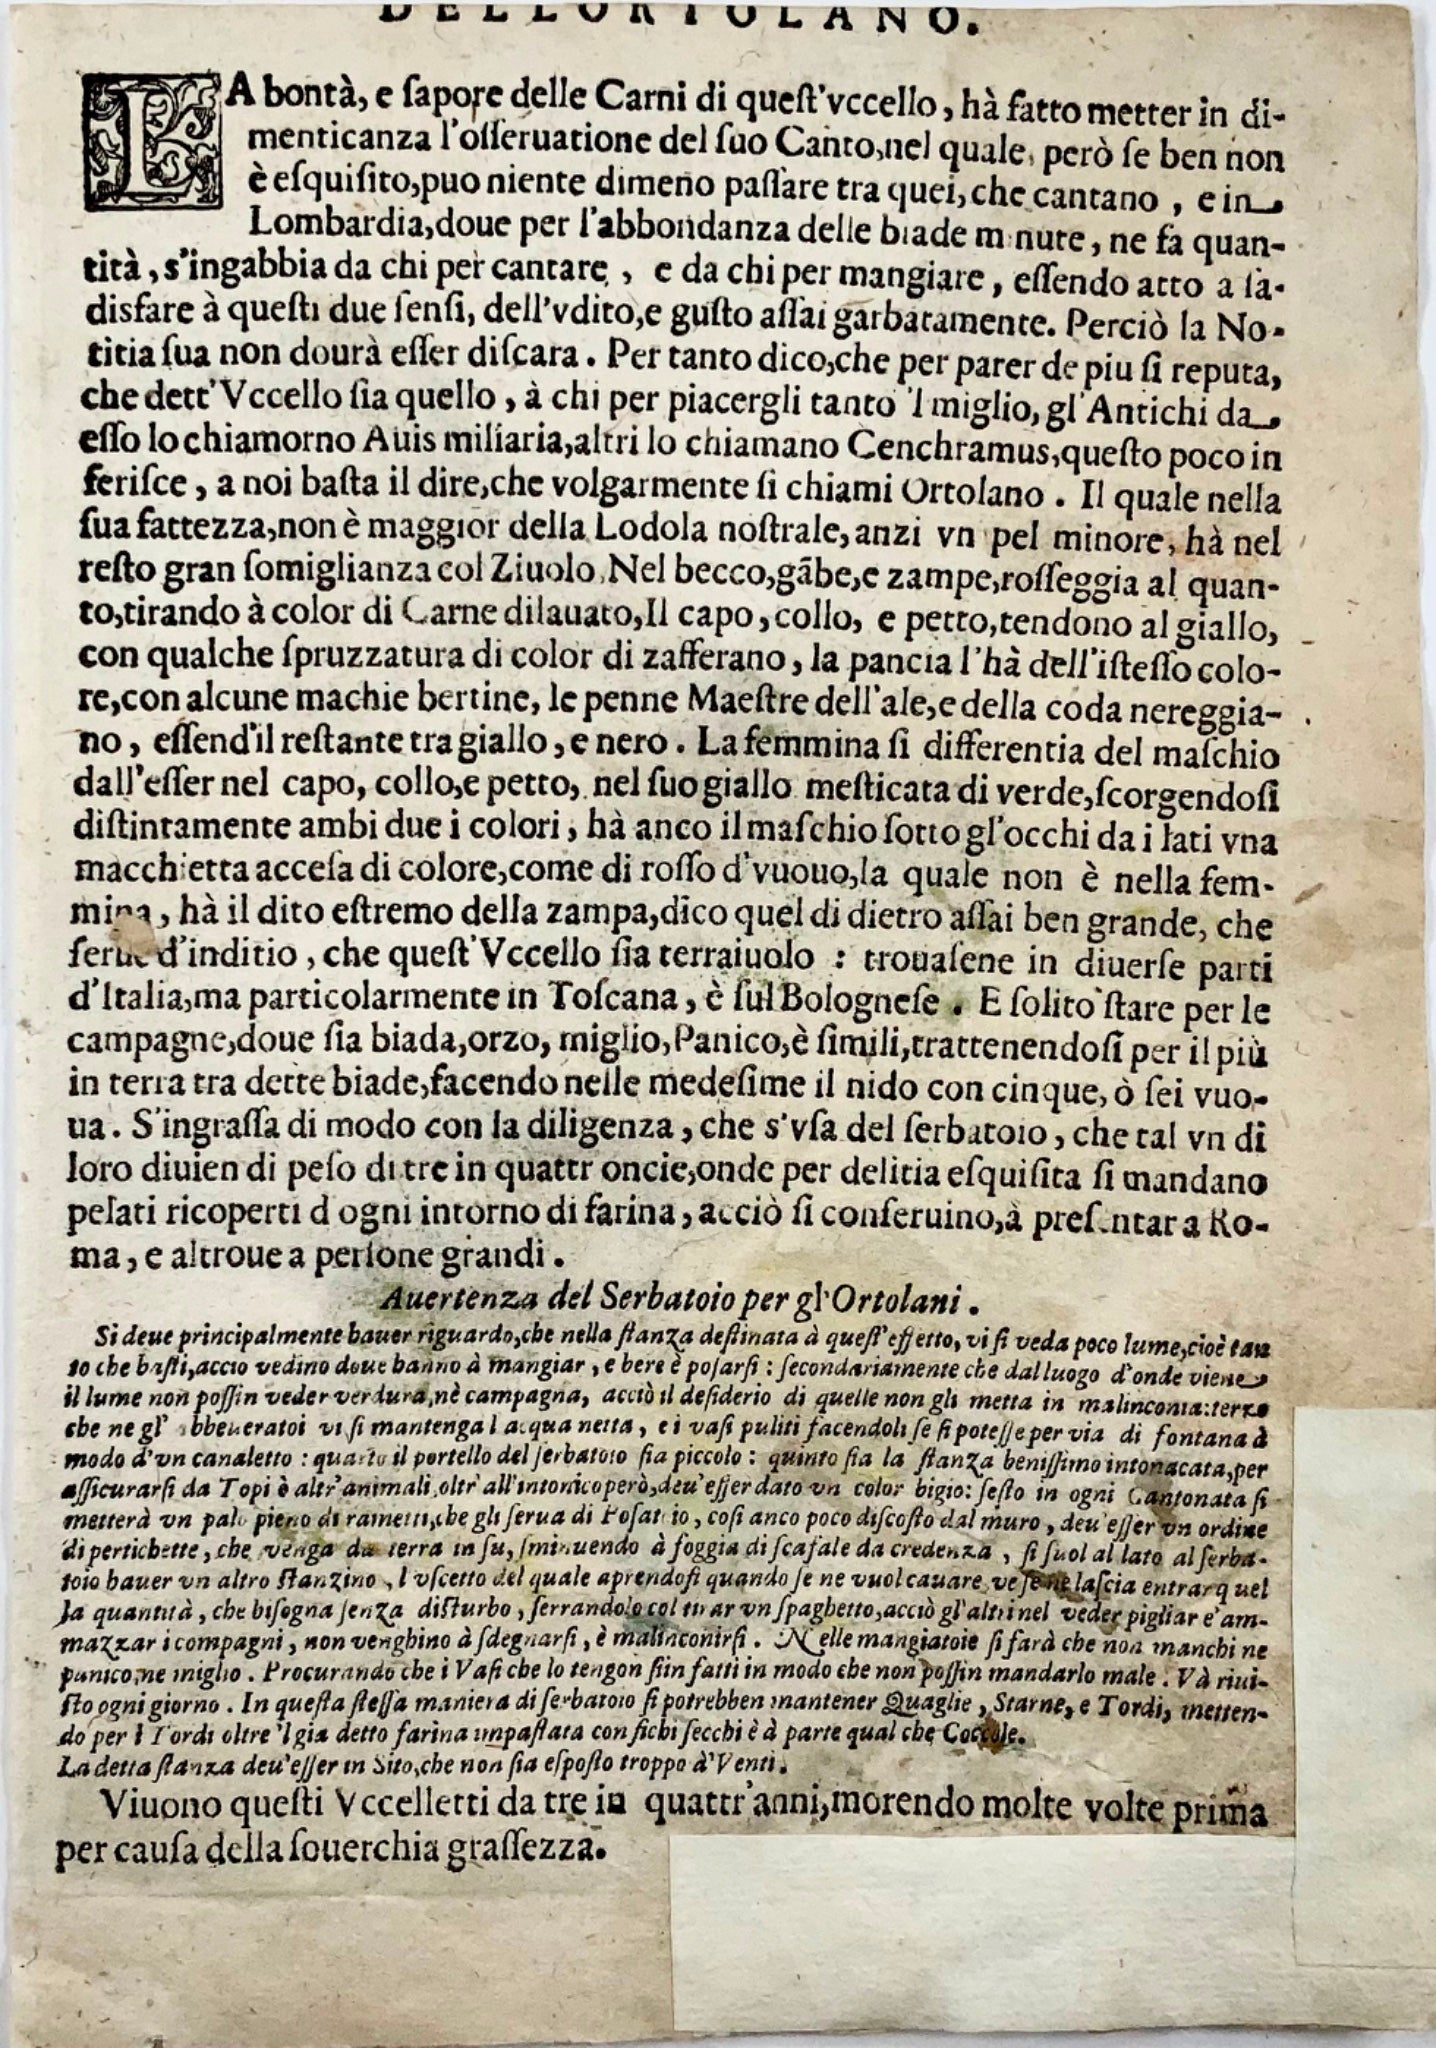 DELL'ORTOLANO.
LA bontà, e ſapore delle Carni di queſt'vccello, hà fatto metter in di-
menticanza l'oſſeruatione del ſuo Canto, nel quale, però ſe ben non
è eſquiſito, puo niente dimeno paſſare tra quei, che cantano, e in
Lombardia, doue per l'abbondanza delle biade minute, ne fa quan-
tità, s'ingabbia da chi per cantare, e da chi per mangiare, eſſendo atto a ſa-
disfare à queſti due ſenſi, dell'vdito, e guſto aſſai garbatamente. Perciò la No-
titia ſua non dourà eſſer diſcara. Per tanto dico, che per parer de piu ſi reputa,
che dett'Vccello ſia quello, à chi per piacergli tanto 'l miglio, gl'Antichi da
eſſo lo chiamorno Auis miliaria, altri lo chiamano Cenchramus, queſto poco in
feriſce, a noi baſta il dire, che volgarmente ſi chiami Ortolano. Il quale nella
ſua fattezza, non è maggior della Lodola noſtrale, anzi vn pel minore, hà nel
reſto gran ſomiglianza col Ziuolo. Nel becco, gãbe, e zampe, roſſeggia al quan-
to, tirando à color di Carne dilauato, Il capo, collo, e petto, tendono al giallo,
con qualche ſpruzzatura di color di zafferano, la pancia l'hà dell'iſteſſo colo-
re, con alcune machie bertine, le penne Maeſtre dell'ale, e della coda nereggia-
no, eſſend'il reſtante tra giallo, e nero. La femmina ſi differentia del maſchio
dall'eſſer nel capo, collo, e petto, nel ſuo giallo meſticata di verde, ſcorgendoſi
diſtintamente ambi due i colori, hà anco il maſchio ſotto gl'occhi da i lati vna
macchietta acceſa di colore, come di roſſo d'vuouo, la quale non è nella fem-
mina, hà il dito eſtremo della zampa, dico quel di dietro aſſai ben grande, che
ſerue d'inditio, che queſt'Vccello ſia terraiuolo : trouaſene in diuerſe parti
d'Italia, ma particolarmente in Toſcana, è ſul Bologneſe. E ſolito ſtare per le
campagne, doue ſia biada, orzo, miglio, Panico, è ſimili, trattenendoſi per il più
in terra tra dette biade, facendo nelle medeſime il nido con cinque, ò ſei vuo-
ua. S'ingraſſa di modo con la diligenza, che s'vſa del ſerbatoio, che tal vn di
loro diuien di peſo di tre in quattr oncie, onde per delitia eſquiſita ſi mandano
pelati ricoperti d ogni intorno di farina, acciò ſi conſeruino, à preſentar a Ro-
ma, e altroue a perſone grandi.
Auertenza del Serbatoio per gl'Ortolani.
Si deue principalmente hauer riguardo, che nella ſtanza deſtinata à queſt'effetto, vi ſi veda poco lume, cioè tan
to che baſti, accio vedino doue hanno à mangiar, e bere è poſarſi : ſecondariamente che dal luogo d'onde viene
il lume non poſſin veder verdura, nè campagna, acciò il deſiderio di quelle non gli metta in malinconia: terzo
che ne gl' abbeueratoi vi ſi mantenga l acqua netta, e i vaſi puliti facendoli ſe ſi poteſſe per via di fontana à
modo d'vn canaletto : quarto il portello del ſerbatoio ſia piccolo : quinto ſia la ſtanza beniſſimo intonacata, per
aſſicurarſi da Topi è altr'animali, oltr'all'intonico però, deu'eſſer dato vn color bigio: ſeſto in ogni Cantonata ſi
metterà vn palo pieno di rametti, che gli ſerua di Poſatoio, coſi anco poco diſcoſto dal muro, deu'eſſer vn ordine
di pertichette, che venga da terra in ſu, ſminuendo à foggia di ſcafale da credenza, ſi ſuol al lato al ſerba-
toio hauer vn altro ſtanzino, l vſcetto del quale aprendoſi quando ſe ne vuol cauare, ve ſe ne laſcia entrar quel
la quantità, che biſogna ſenza diſturbo, ſerrandolo col tirar vn ſpaghetto, acciò gl'altri nel veder pigliar e'am-
mazzar i compagni, non venghino à ſdegnarſi, è malinconirſi. Nelle mangiatoie ſi farà che non manchi ne
panico, ne miglio. Procurando che i Vaſi che lo tengon ſiin fatti in modo che non poſſin mandarlo male. Và riui-
ſto ogni giorno. In queſta ſteſſa maniera di ſerbatoio ſi potrebben mantener Quaglie, Starne, e Tordi, metten-
do per i Tordi oltre 'l gia detto farina impaſtata con fichi ſecchi è à parte qual che Coccole.
La detta ſtanza deu'eſſer in Sito, che non ſia eſpoſto troppo à'Venti.
Viuono queſti Vccelletti da tre in quattr'anni, morendo molte volte prima
per cauſa della ſouerchia graſſezza.